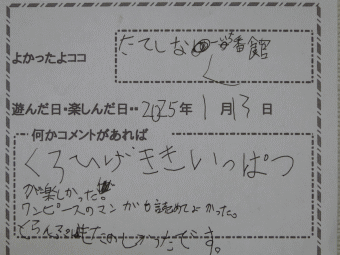 よかったよココ
たてしな 一番館
遊んだ日・楽しんだ日・・2025年1月13日
何かコメントがあれば
くろひげききいっぱつ
が楽しかった。
ワンピースのマンガも読めてよかった。
とらんぷもたのしかったです。